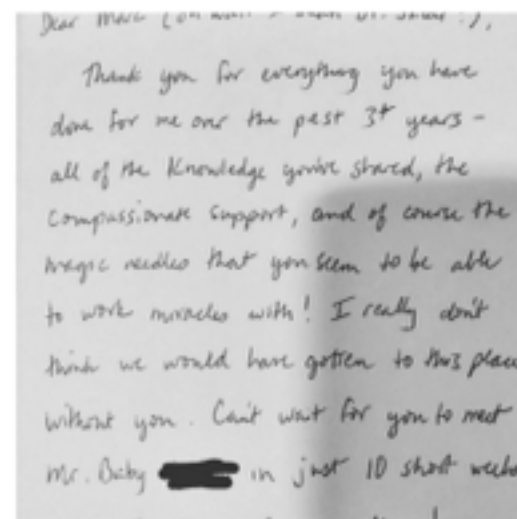 Dear
Thank you for everything you have
done for me over the past 3+ years -
all of the Knowledge you've shared, the
compassionate support, and of course the
magic needles that you seem to be able
to work miracles with! I really don't
think we would have gotten to this place
without you. Can't wait for you to meet
Mr. Baby in just 10 short weeks